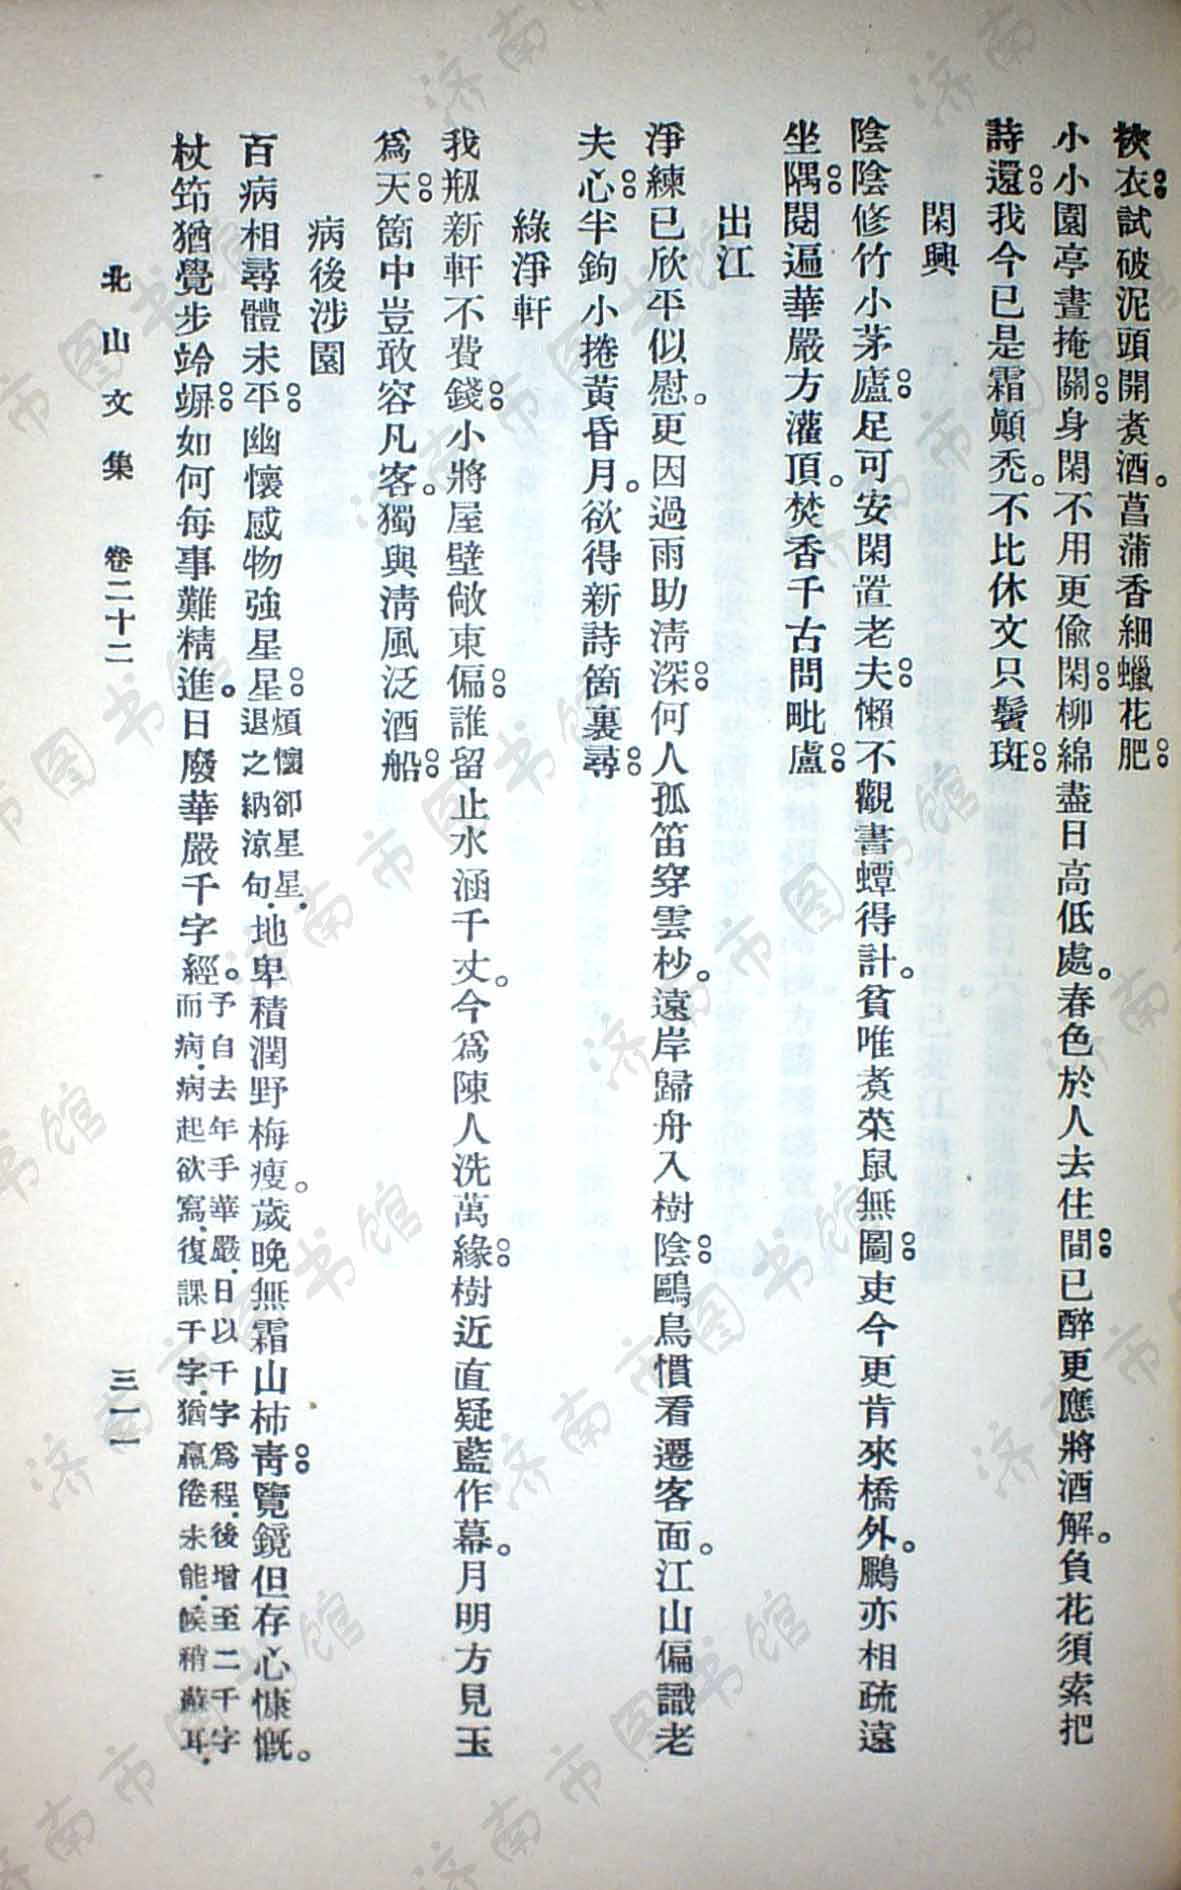 裌衣試破泥頭開煮酒。菖蒲香細蠟花肥。
小小園亭晝掩關。身閑不用更偸閑。柳綿盡日高低處。春色於人去住間。已醉更應將酒解。負花須索把
詩還。我今已是霜顚禿。不比休文只鬢斑。
閑興
陰陰修竹小茅廬。足可安閑置老夫。懶不觀書蟫得計。貧唯煮菜鼠無圖。吏今更肯來橋外。鵬亦相疏遠
坐隅。閱遍華嚴方灌頂。焚香千古問毗盧。
出江
淨練已欣平似慰。更因過雨助淸深。何人孤笛穿雲杪。遠岸歸舟入樹陰。鷗鳥慣看遷客面。江山偏識老
夫心。半鉤小捲黃昏月。欲得新詩箇裏尋。
綠淨軒
我刱新軒不費錢。小將屋壁敞東偏。誰留止水涵千丈。今爲陳人洗萬緣。樹近直疑藍作幕。月明方見玉
爲天。箇中豈敢容凡客。獨與淸風泛酒船。
病後涉園
百病相尋體未平。幽懷感物強星星。煩懷卻星星.退之納涼句.地卑積潤野梅瘦。歲晚無霜山柿靑。覽鏡但存心慷慨。
杖笻猶覺步竛竮。如何每事難精進。日廢華嚴千字經。予自去年手華嚴.日以千字爲程.後增至二千字而病.病起欲寫.復課千字.猶羸倦未能.候稍蘇耳.
北山文集 卷二十二 三一一
济南市图书馆